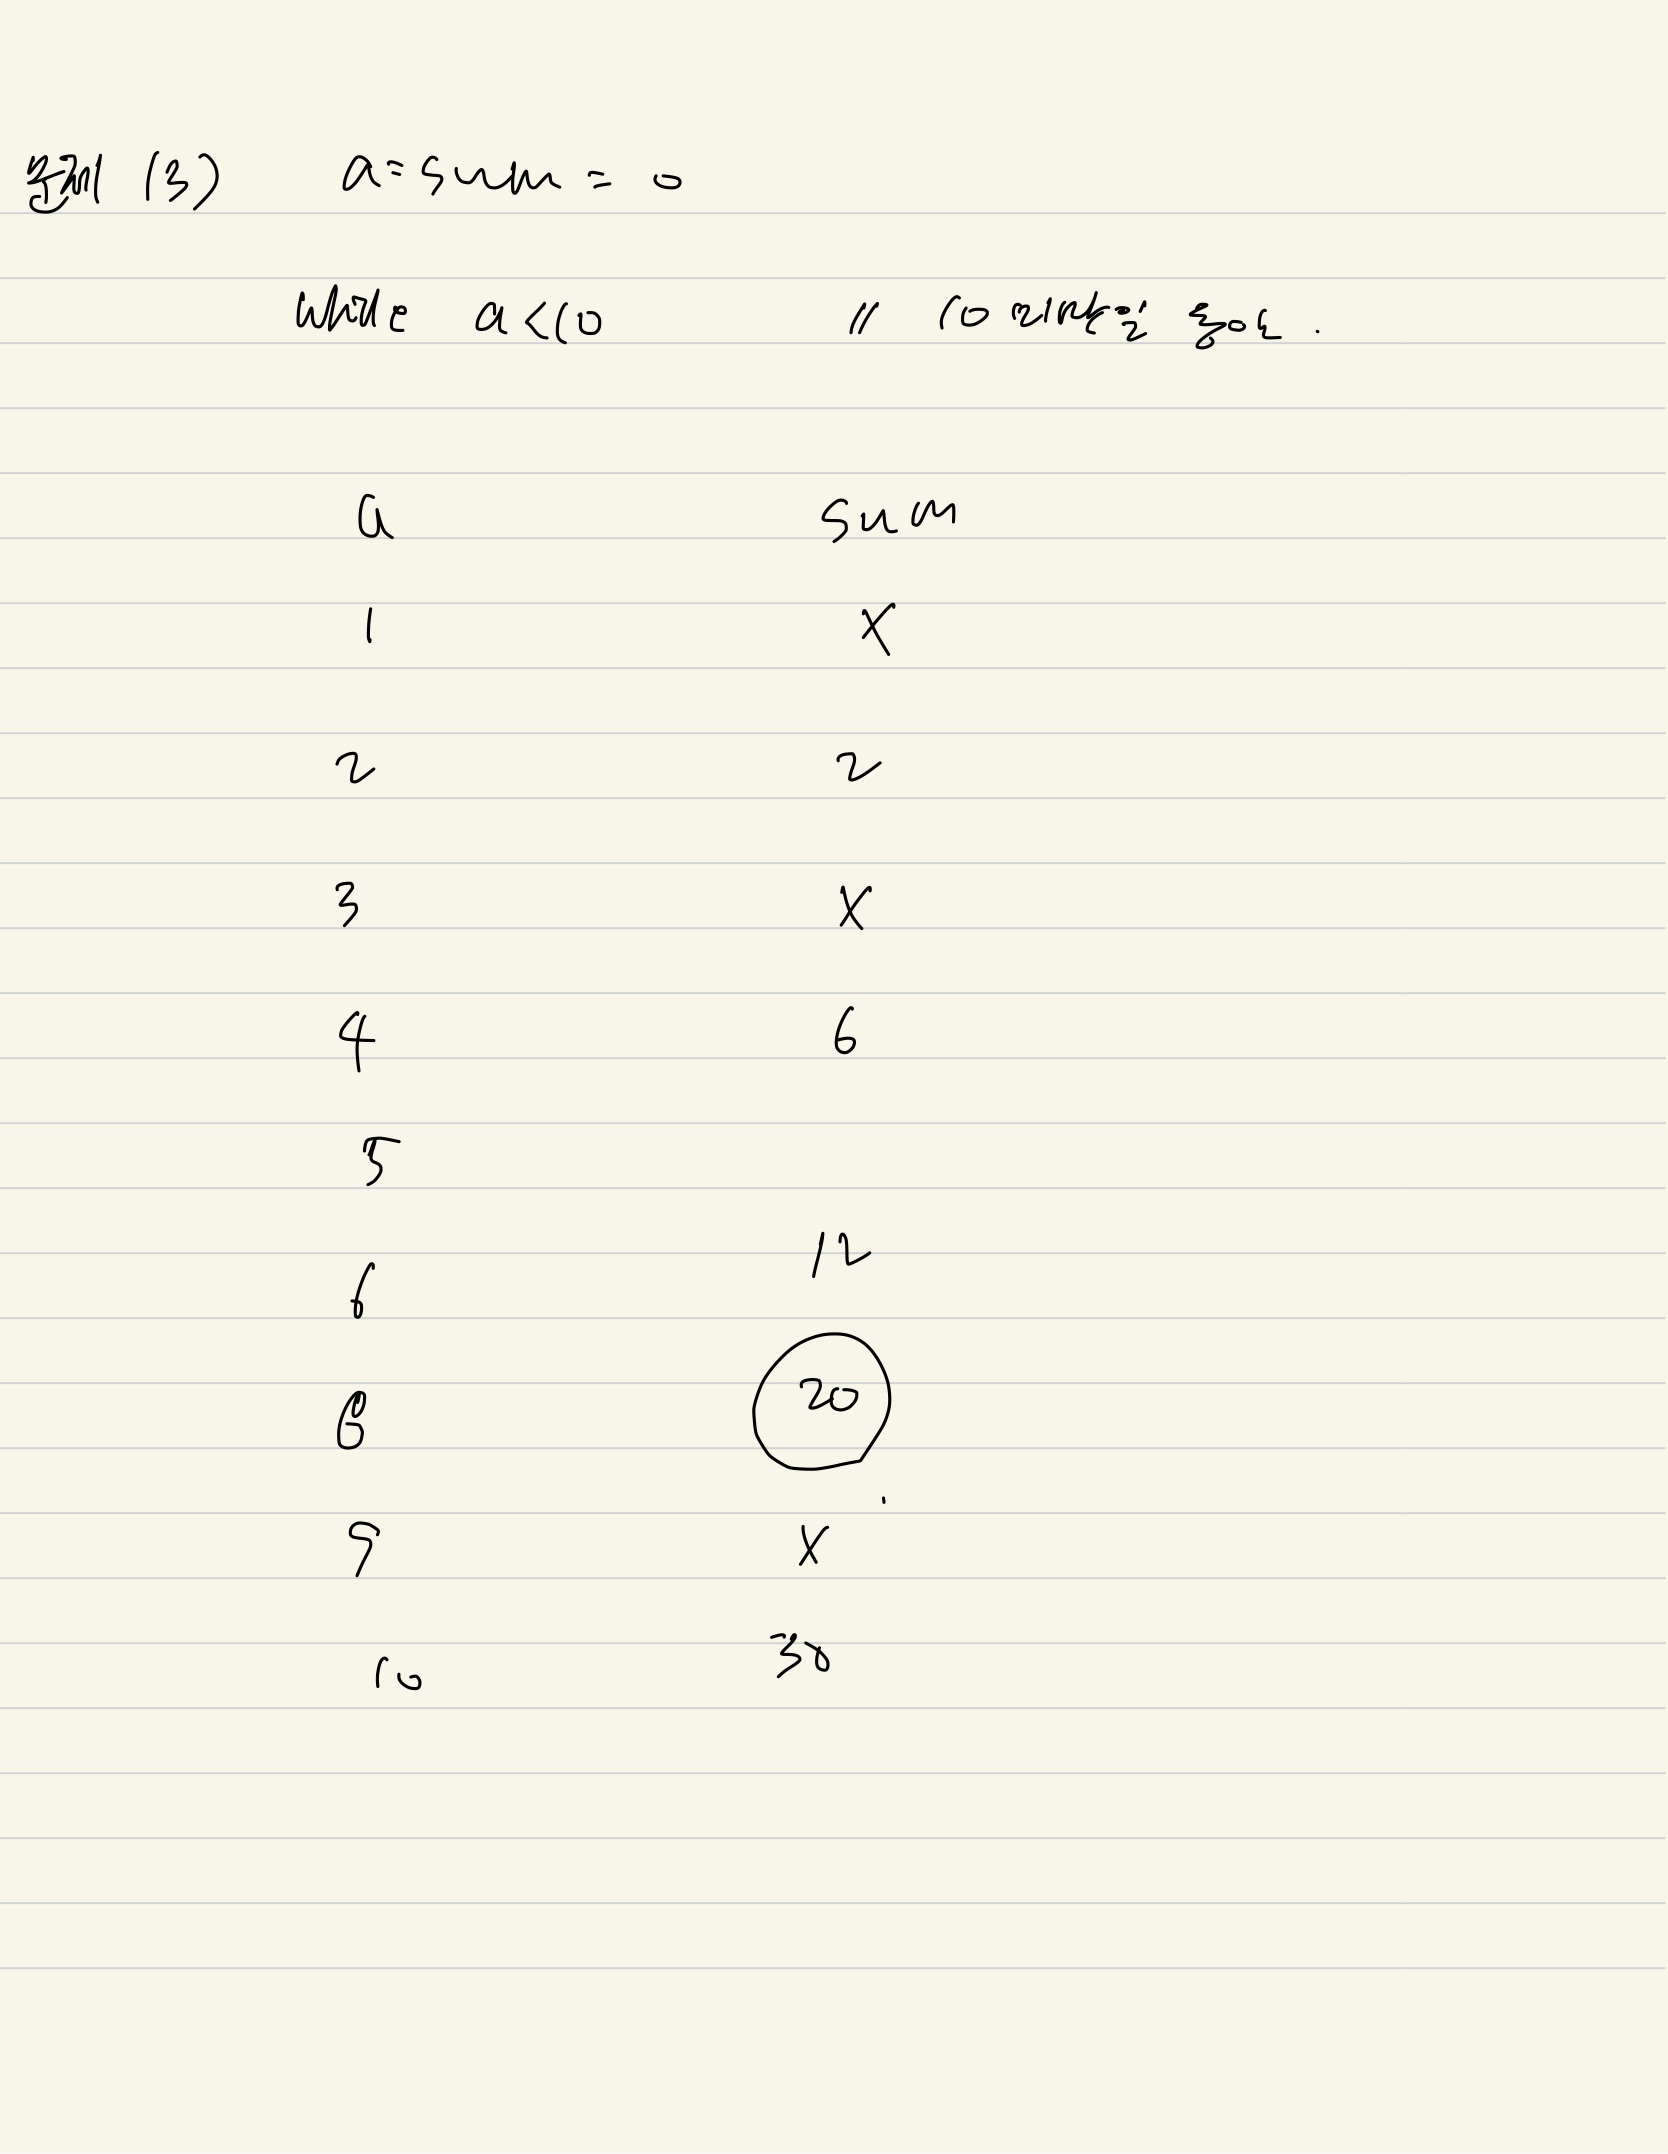 문제 (3) a = sum = 0
while a<10 // 10
a sum
1 X
2 2
3 X
4 6
5
6 12
8 20
9 X
10 30